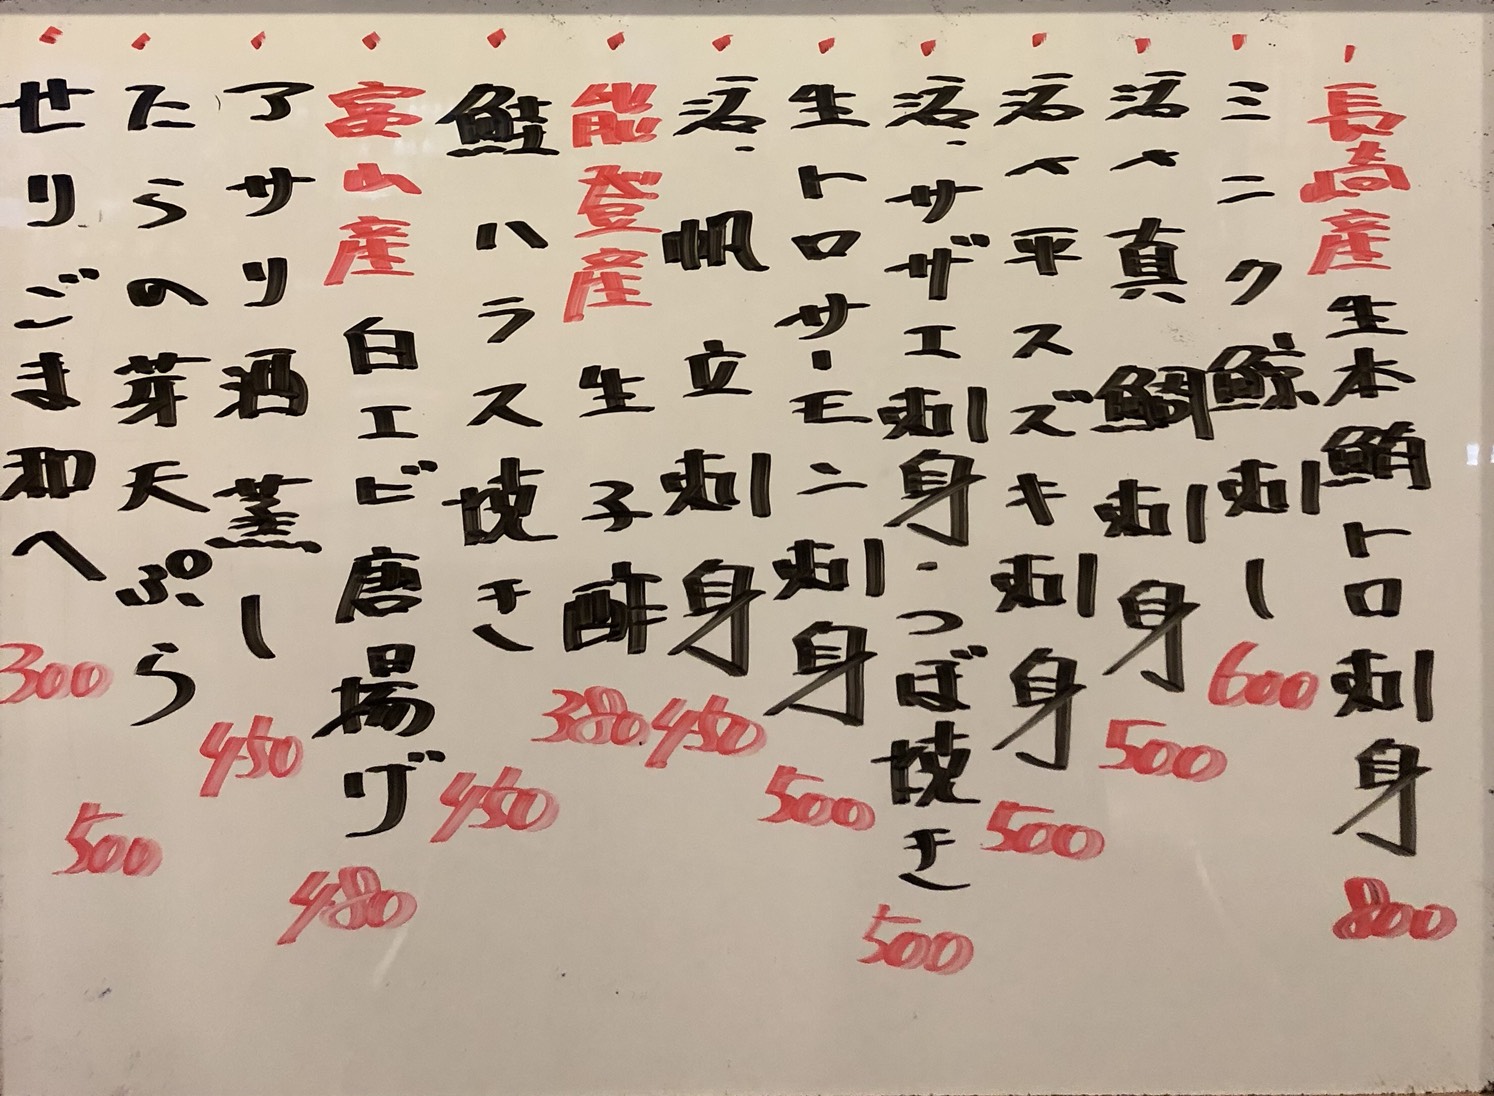 長崎産生本鮪トロ刺身 800
ミンク鯨刺し 600
活〆真鯛刺身 500
活〆平スズキ刺身 500
活・サザエ刺身・つぼ焼き 500
生トロサーモン刺身 500
活・帆立刺身 450
能登産生子酢 380
鮭ハラス焼き 450
富山産白エビ唐揚げ 480
アサリ酒蒸し 450
たらの芽天ぷら 500
せりごま和へ 300